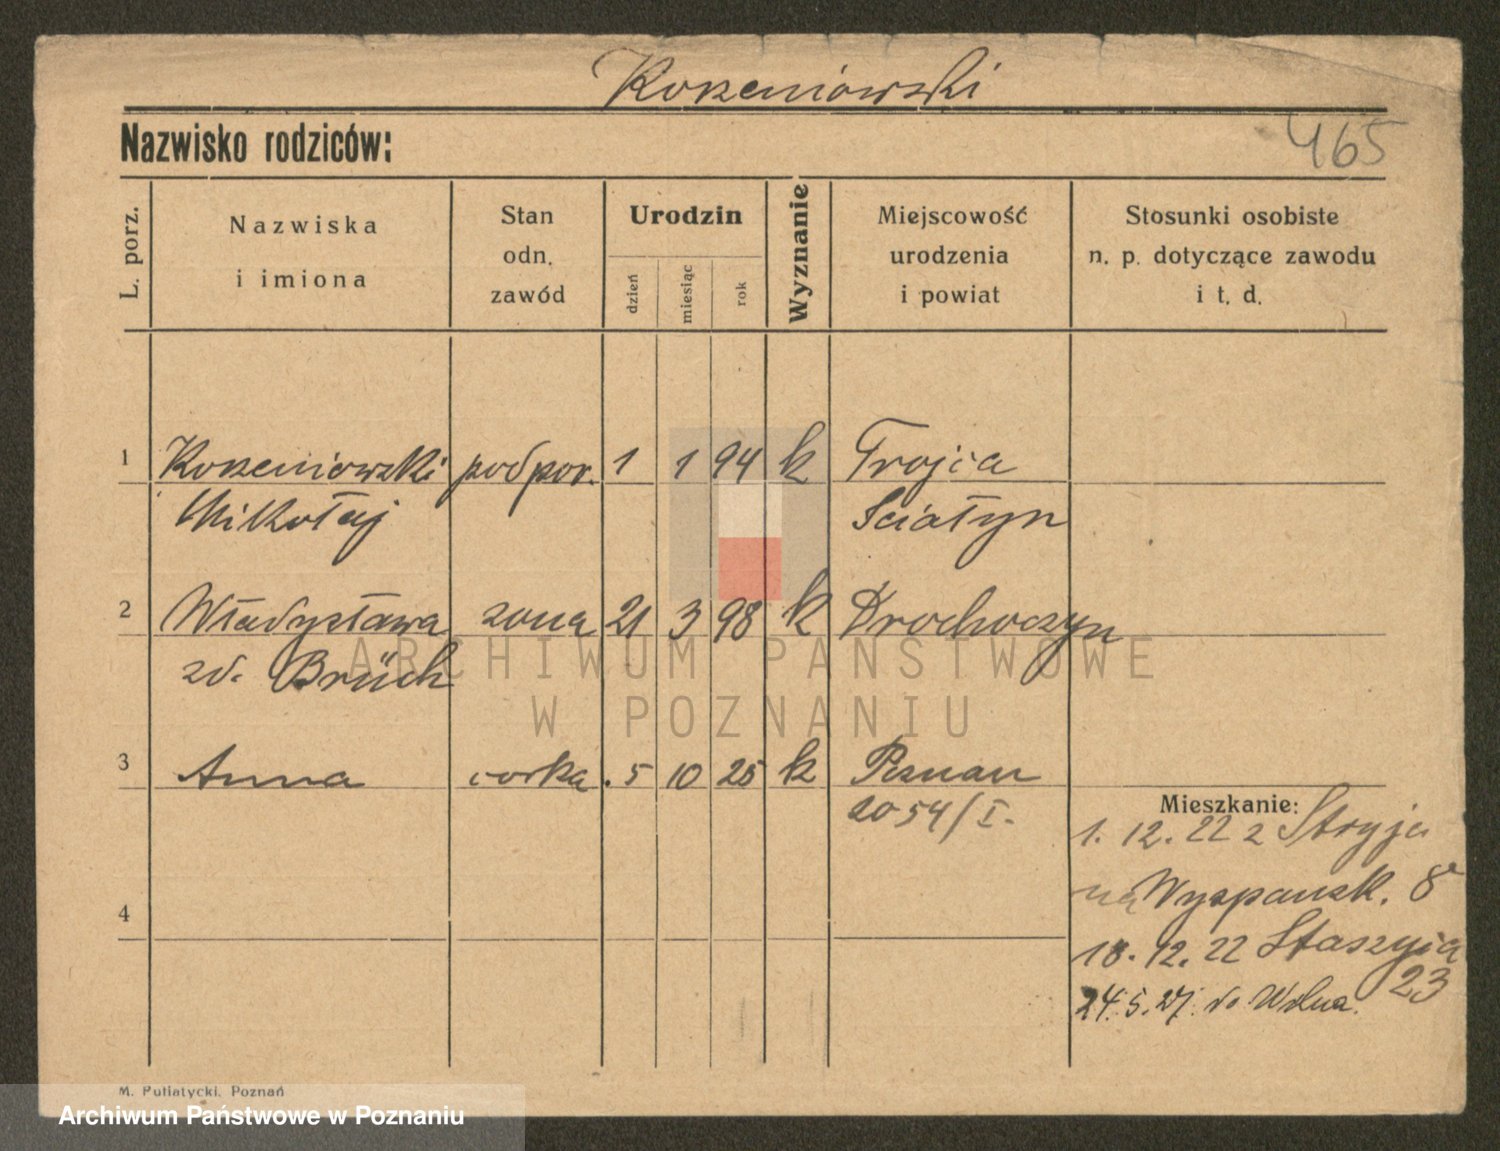 Korzeniowski
Nazwisko rodziców:
465
L. porz.
Nazwiska
i imiona
Stan
odn.
zawód
Urodzin
dzień
miesiąc
rok
Wyznanie
Miejscowość
urodzenia
i powiat
Stosunki osobiste
n. p. dotyczące zawodu
i t. d.
1 Korzeniowski podpor. 1 1 94 k Trojca
Mikołaj Sciatyn
2 Władysława zona 21 3 98 k Drohoczyn
zd. Brüch
3 Anna corka 5 10 25 k Poznan
2054/I.
Mieszkanie:
1. 12. 22 z Stryja
na Wyspansk. 8
18. 12. 22 Staszyca
23
24.5.27. do Wilna.
4
ARCHIWUM PAŃSTWOWE
W POZNANIU
M. Putiatycki, Poznań
Archiwum Państwowe w Poznaniu